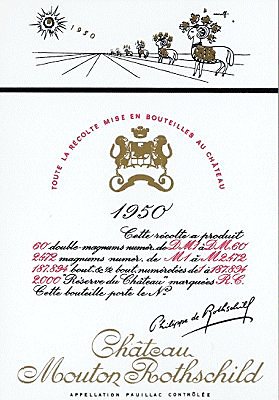 1950
TOUTE LA RÉCOLTE MISE EN BOUTEILLES AU CHÂTEAU
1950
Cette récolte a produit
60 double-magnums numér. de D.M.1 à D.M.60
2.672 magnums numér. de M1 à M2.672
187.894 bout. & ½ bout. numérotées de 1 à 187.894
2.000 Réserve du Château marquées R.C.
Cette bouteille porte le N.º
Philippe de Rothschild
Château
Mouton Rothschild
APPELLATION PAUILLAC CONTRÔLÉE